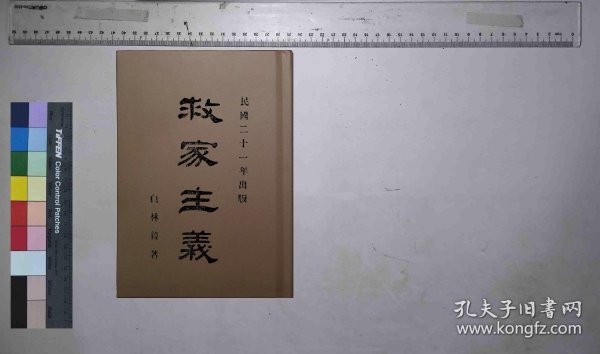 民國二十一年出版
救家主義
白林 著
TIFFEN Color Control Patches
孔夫子旧書网
www.kongfz.com